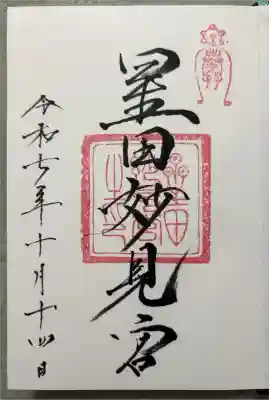 奉拝
星田妙見宮
令和七年十月十四日